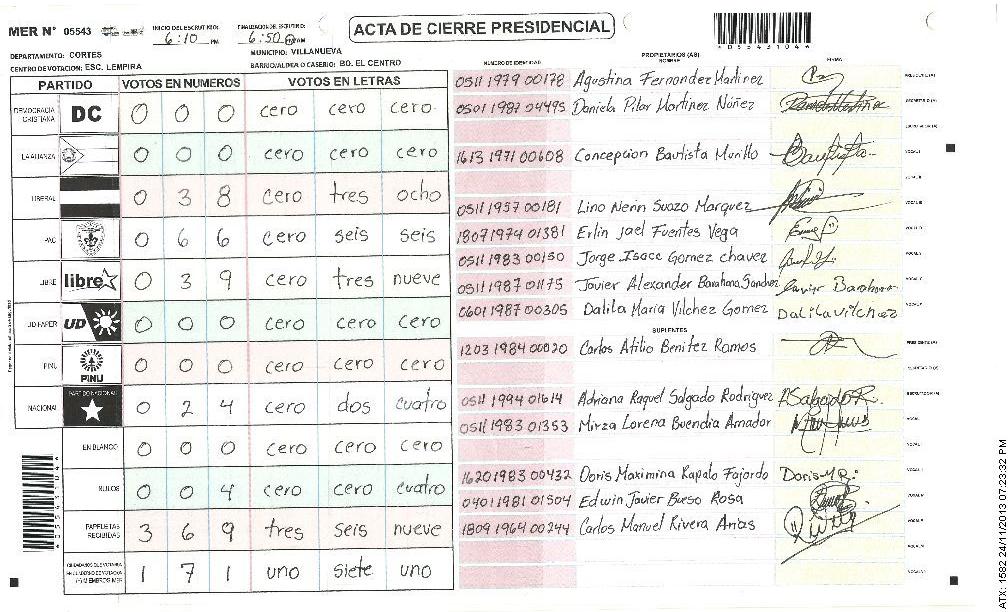 MER N° 05543
INICIO DEL ESCRUTINIO: 6:10 PM
FINALIZACION DEL ESCRUTINIO: 6:50 PM
ACTA DE CIERRE PRESIDENCIAL
DEPARTAMENTO: CORTES
MUNICIPIO: VILLANUEVA
CENTRO DE VOTACION: ESC. LEMPIRA
BARRIO/ALDEA O CASERIO: BO. EL CENTRO
PARTIDO VOTOS EN NUMEROS VOTOS EN LETRAS
DEMOCRACIA CRISTIANA DC 0 0 0 cero cero cero
LA ALIANZA 0 0 0 cero cero cero
LIBERAL 0 3 8 cero tres ocho
PAC 0 6 6 cero seis seis
LIBRE libre 0 3 9 cero tres nueve
UD/FAPER UD 0 0 0 cero cero cero
PINU PINU 0 0 0 cero cero cero
NACIONAL PARTIDO NACIONAL 0 2 4 cero dos cuatro
EN BLANCO 0 0 0 cero cero cero
NULOS 0 0 4 cero cero cuatro
PAPELETAS RECIBIDAS 3 6 9 tres seis nueve
1 7 1 uno siete uno
NUMERO DE IDENTIDAD PROPIETARIOS (AS) NOMBRE FIRMA
0511 1979 00178 Agustina Fernandez Martinez
0501 1987 04495 Daniela Pilar Martinez Núñez
1613 1971 00608 Concepcion Bautista Murillo
0511 1957 00181 Lino Nerin Suazo Marquez
1807 1974 01381 Erlin Jael Fuentes Vega
0511 1983 00150 Jorge Isacc Gomez chavez
0511 1987 01175 Javier Alexander Barahona Sanchez Javier Barahona
0601 1987 00305 Dalila Maria Vilchez Gomez Dalila Vilchez
SUPLENTES
1203 1984 00020 Carlos Atilio Benitez Ramos
0511 1994 01614 Adriana Raquel Salgado Rodriguez ASalgado R.
0511 1983 01353 Mirza Lorena Buendia Amador
1620 1983 00432 Doris Maximina Rapalo Fajardo Doris M R.
0401 1981 01504 Edwin Javier Bueso Rosa
1809 1964 00244 Carlos Manuel Rivera Arias
ATX: 1582 24/11/2013 07:23:32 PM